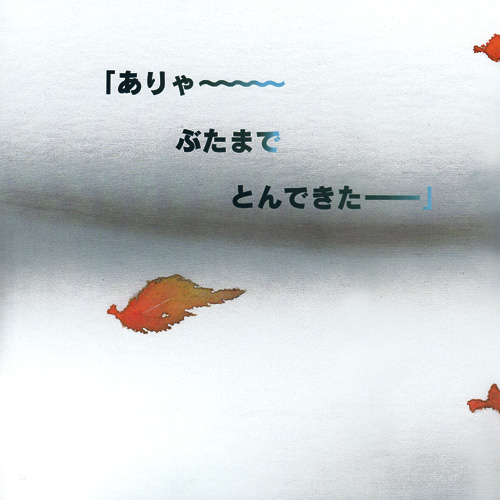 「ありゃ〜〜〜
ぶたまで
とんできたーー」